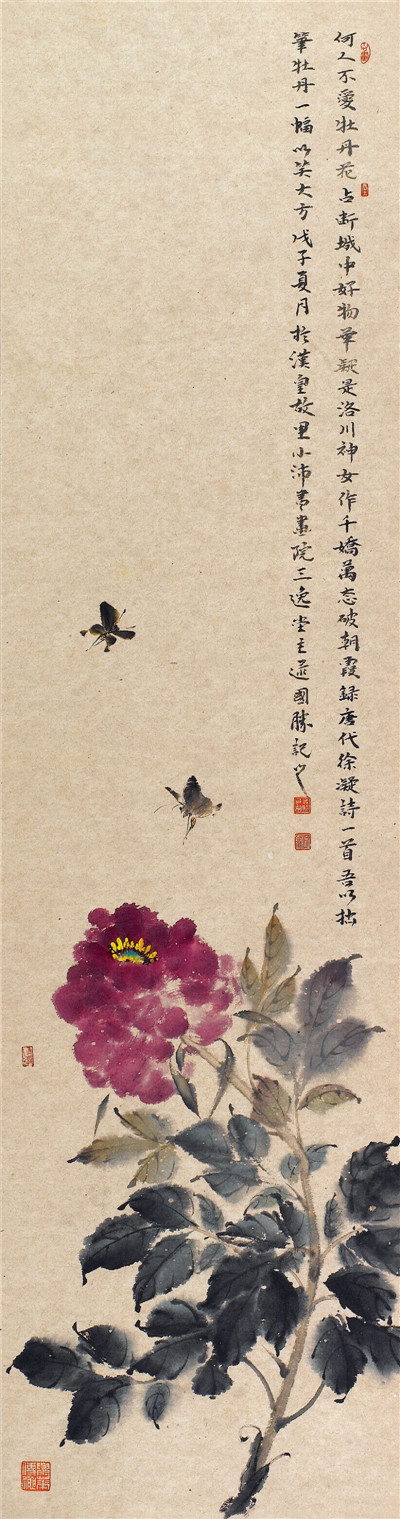 何人不愛牡丹花占断城中好物華疑是洛川神女作千嬌萬态破朝霞録唐代徐凝詩一首吾以拙
筆牡丹一幅以笑大方戊子夏月於漢皇故里小沛書畫院三逸堂主 國勝記之